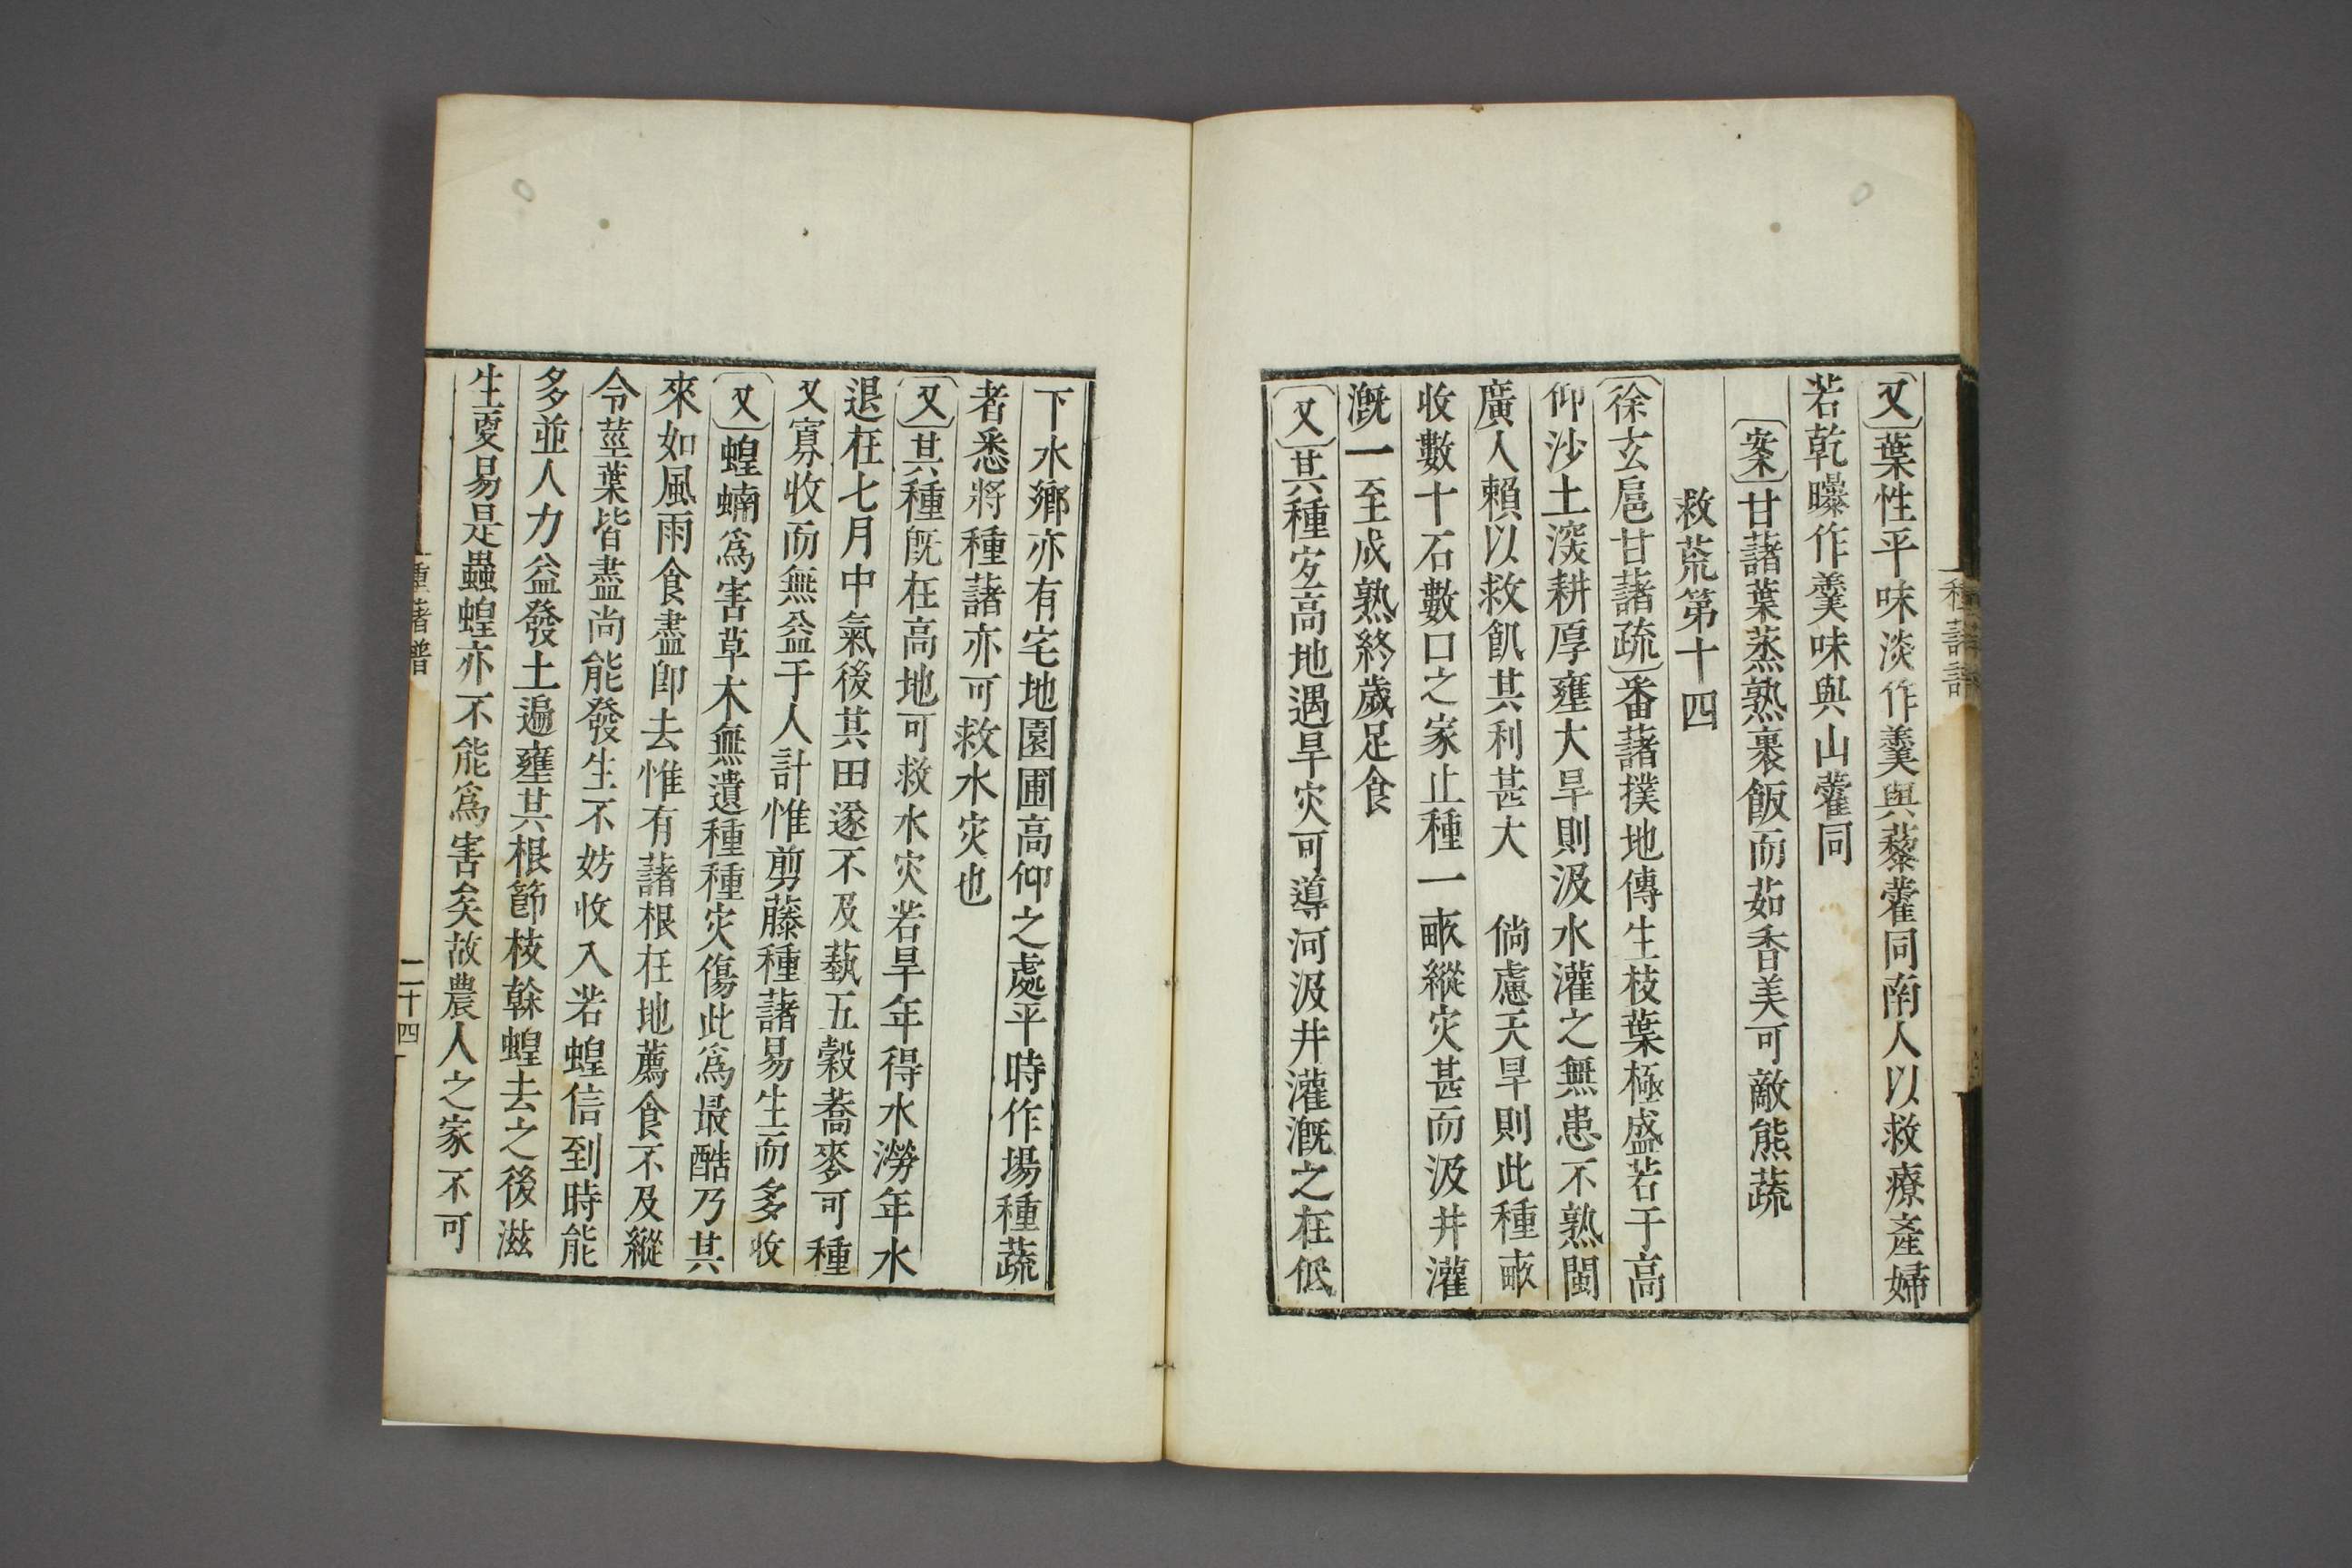 〔又〕葉性平味淡作羹與藜藿同南人以救療產婦
若乾曝作羹味與山藿同
〔案〕甘藷葉蒸熟裹飯而茹香美可敵熊蔬
救荒第十四
〔徐玄扈甘藷疏〕番藷撲地傳生枝葉極盛若于高
仰沙土深耕厚壅大旱則汲水灌之無患不熟閩
廣人賴以救飢其利甚大 倘慮天旱則此種畝
收數十石數口之家止種一畝縱灾甚而汲井灌
漑一至成熟終歲足食
〔又〕其種宜高地遇旱灾可導河汲井灌漑之在低
下水鄉亦有宅地園圃高仰之處平時作場種蔬
者悉將種藷亦可救水灾也
〔又〕其種旣在高地可救水灾若旱年得水澇年水
退在七月中氣後其田遂不及蓺五穀蕎麥可種
又寡收而無益于人計惟剪藤種藷易生而多收
〔又〕蝗蝻爲害草木無遺種種灾傷此爲最酷乃其
來如風雨食盡卽去惟有藷根在地薦食不及縱
令莖葉皆盡尚能發生不妨收入若蝗信到時能
多並人力益發土遍壅其根節枝榦蝗去之後滋
生更易是蟲蝗亦不能爲害矣故農人之家不可
種藷譜
二十四